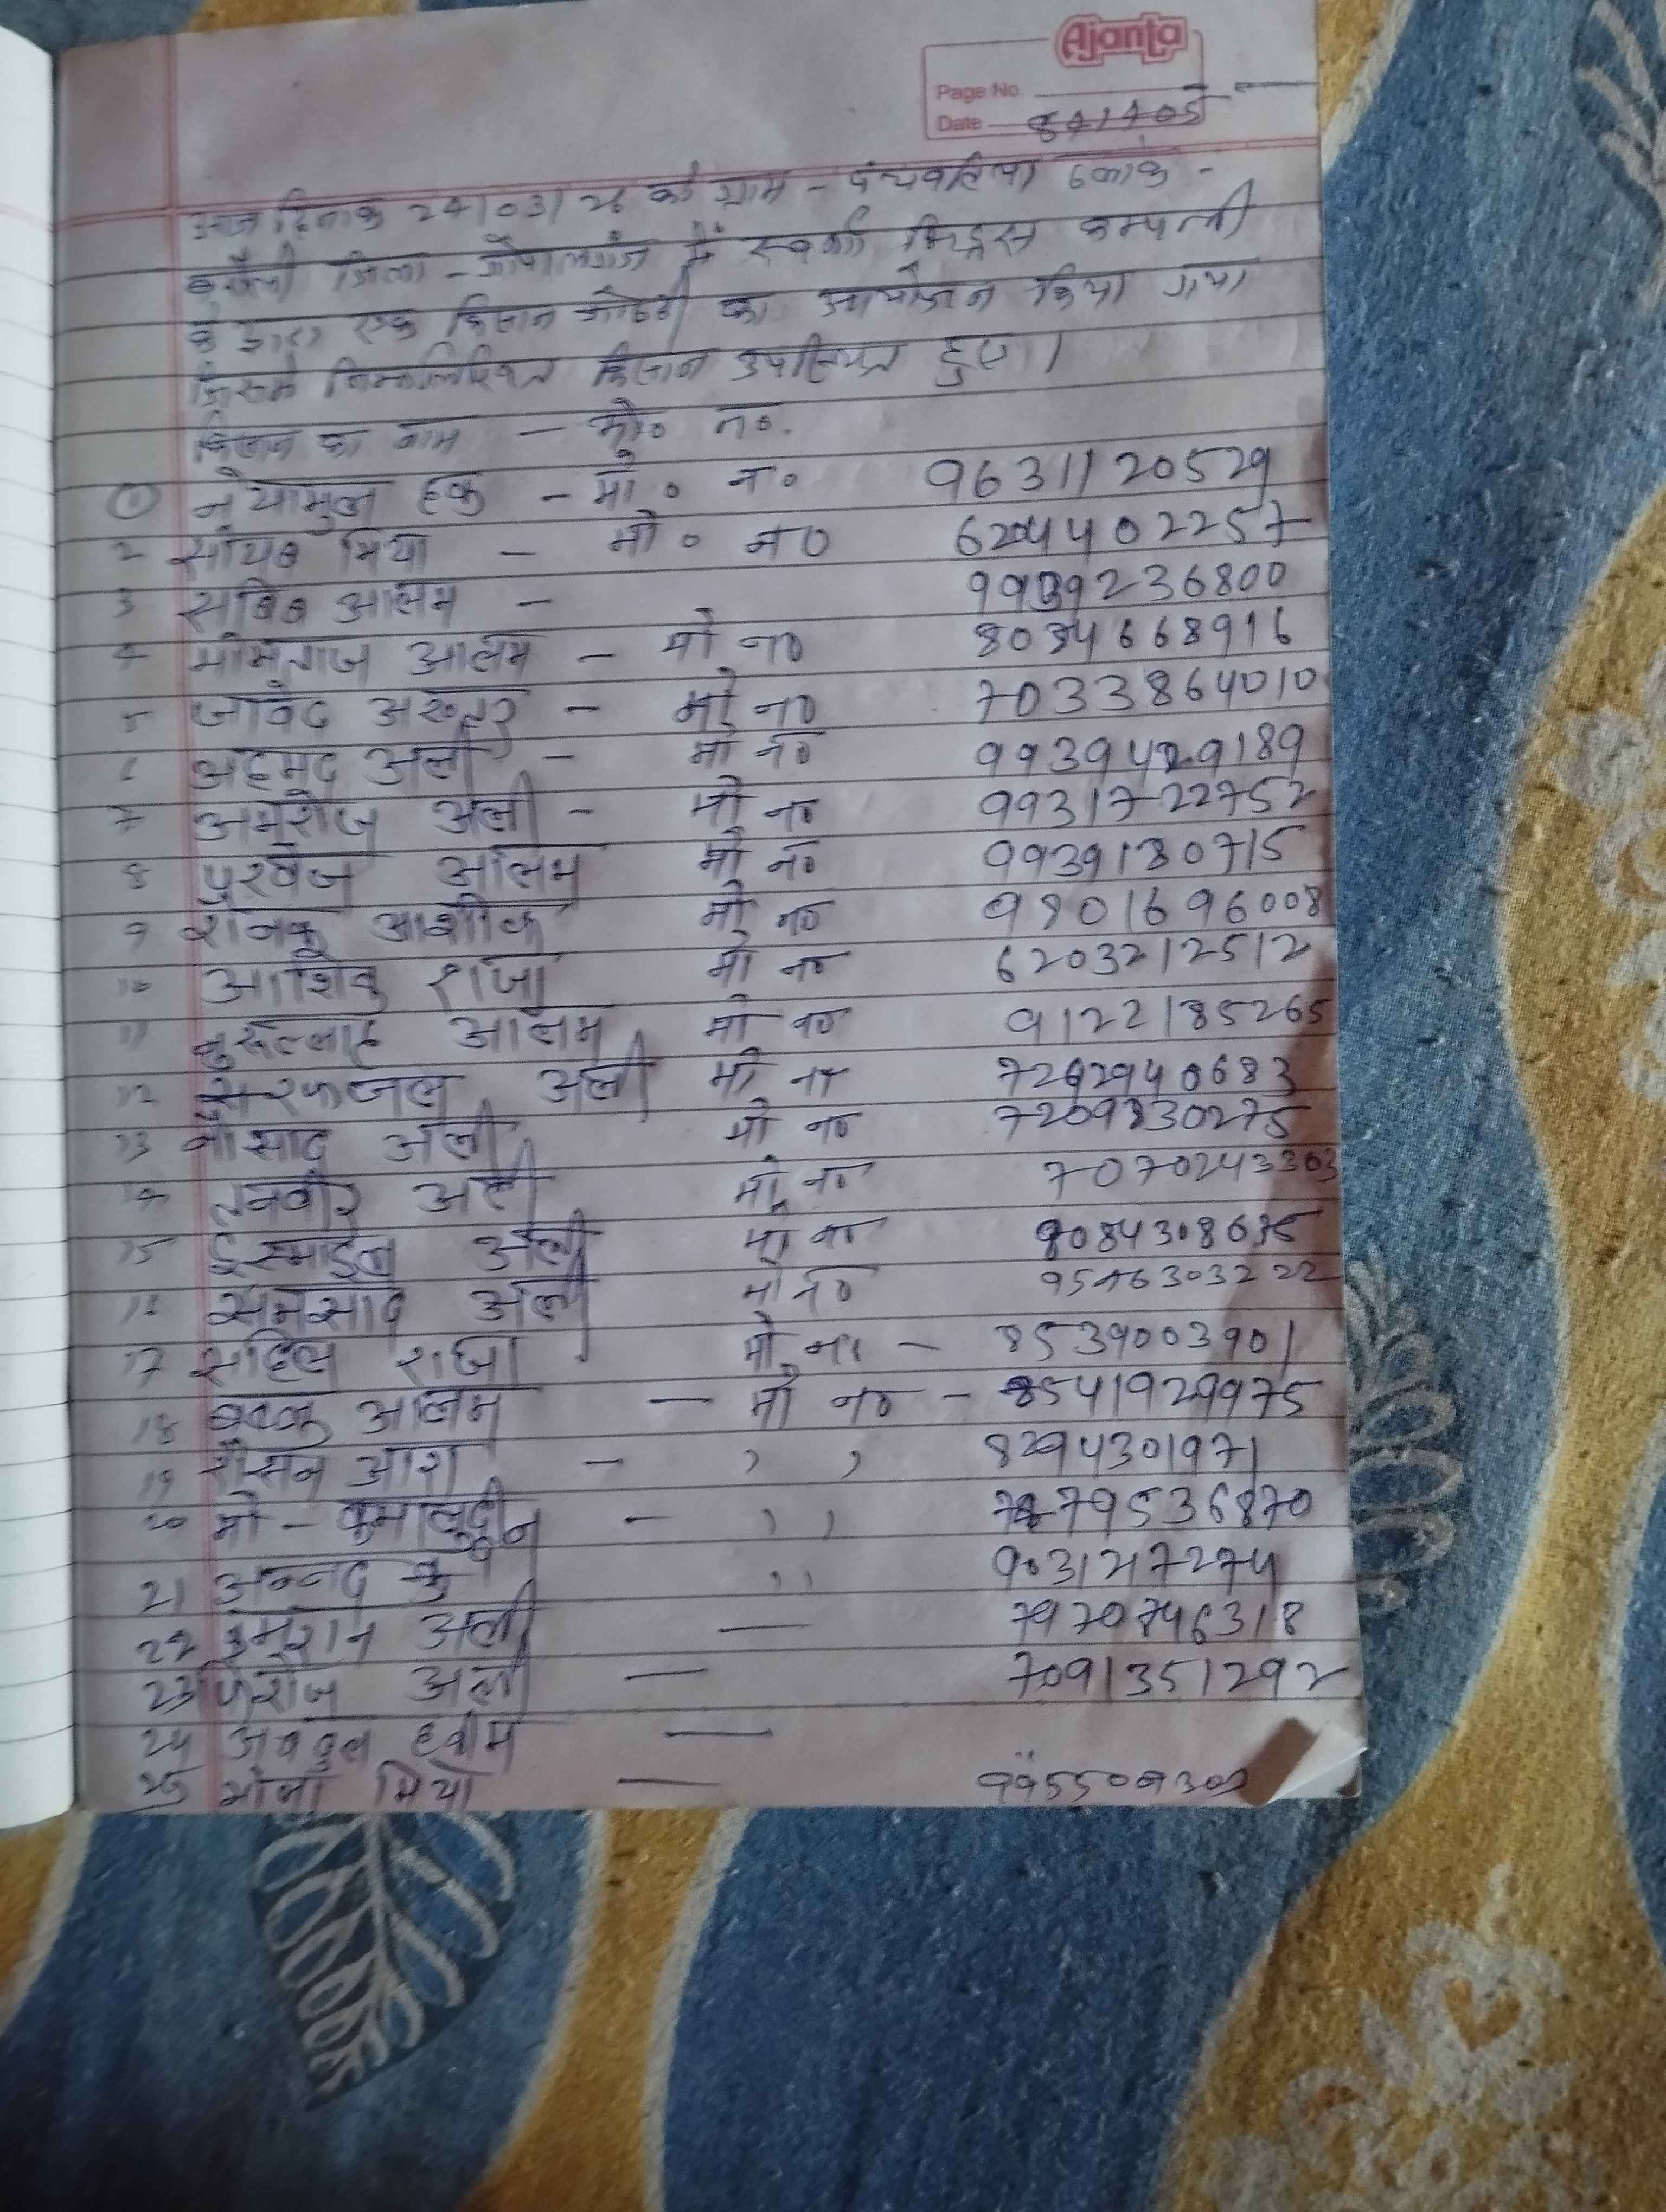 Ajanta
Page No.
Date 841405
आज दिनांक 24/03/26 को ग्राम - पंचवटिया ब्लॉक -
बरौली जिला - गोपालगंज में स्वर्णा सिड्स कम्पनी
के द्वारा एक किसान गोष्ठी का आयोजन किया गया
जिसमे निम्नलिखित किसान उपस्थित हुए।
किसान का नाम - मो० न०.
1 नेयामुल हक - मो० न० 9631120529
2 सोयब मिया - मो० न० 6204402257
3 सबिब आलम - 9939236800
4 मोमताज आलम - मो न० 8084668916
5 जावेद अख्तर - मो न० 7033864010
6 अहमद अली - मो न० 9939429189
7 अमरोज अली - मो न० 9931722752
8 परवेज आलम मो न० 9939180715
9 रौनक आशीक मो न० 9801696008
10 आशिक राजा मो न० 6203212512
11 नुरुल्लाह आलम मो न० 9122185265
12 सरफजल अली मो न० 7292940683
13 नौसाद अली मो न० 7209830275
14 तनवीर अली मो न० 7070243303
15 इस्माइल अली मो न० 9084308635
16 समसाद अली मो न० 9546303222
17 साहिल राजा मो न० - 8539003901
18 आलम - मो न० - 8541929975
19 रौसन आरा - , , 8294301971
20 मो - कमालुद्दीन - , , 7879536870
21 अन्नद कु , , 9031217274
22 इमरान अली - 7970746318
23 फिरोज अली - 7091351292
24 अबदुल हकीम -
25 भोला मिया - 9955509302